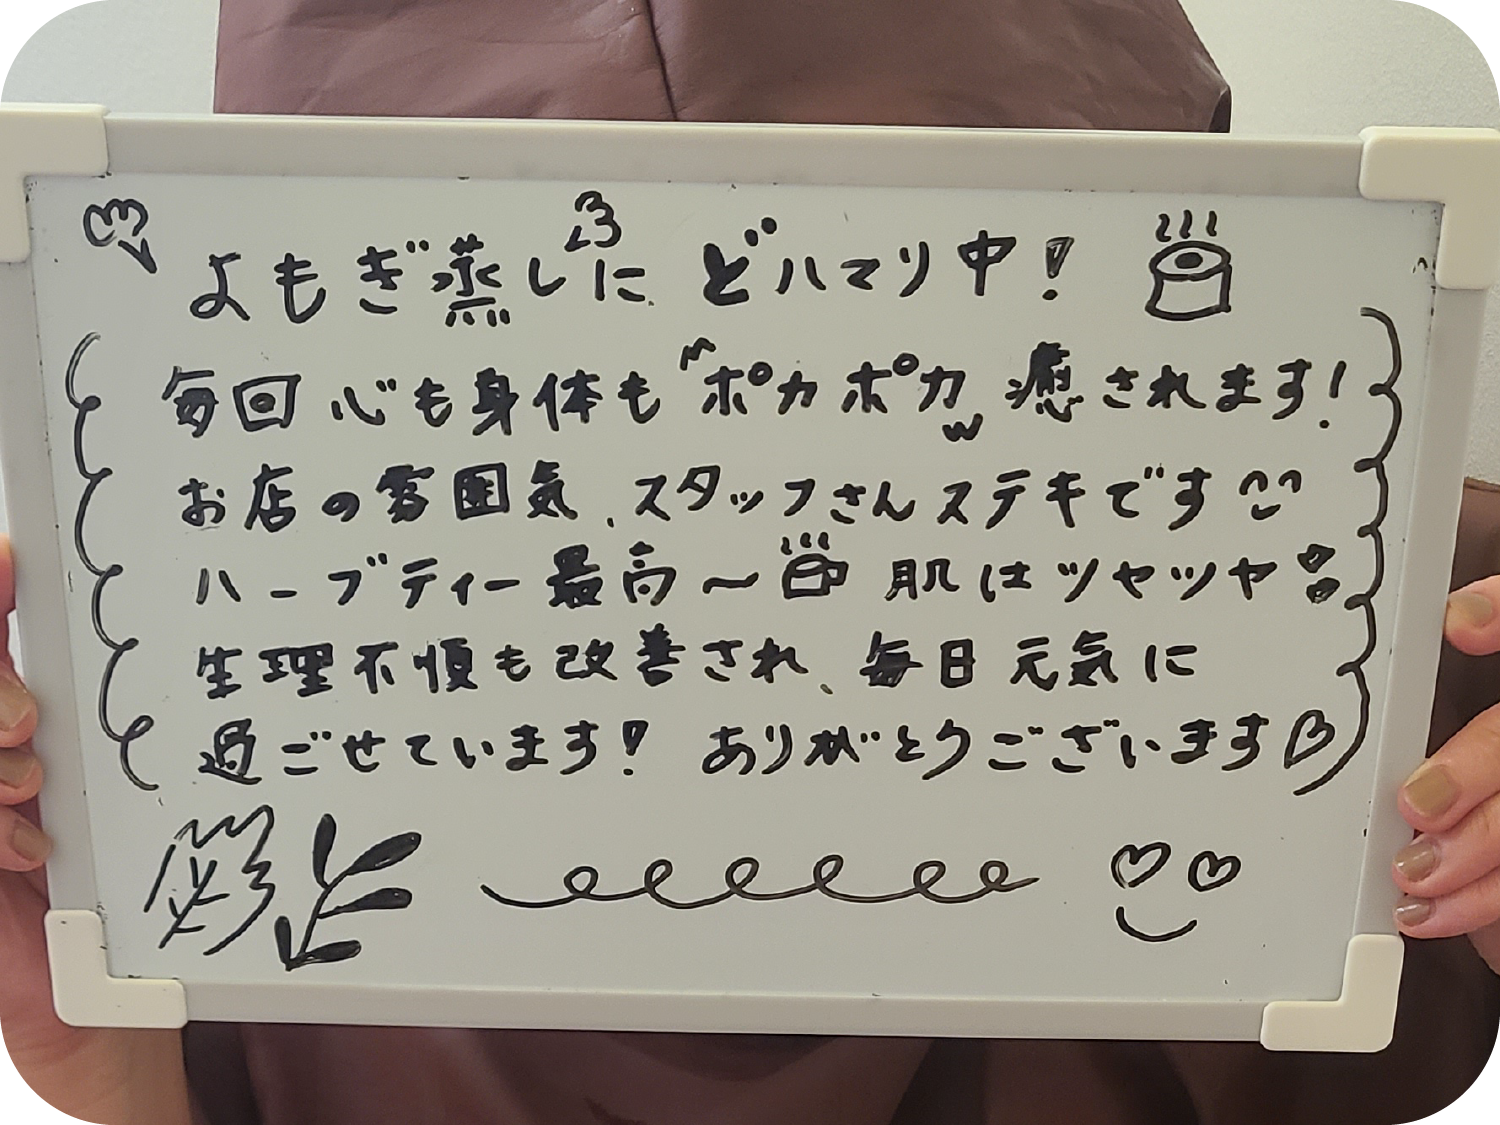 よもぎ蒸しに どハマり中！
毎回 心も身体も〝ポカポカ〟癒されます！
お店の雰囲気、スタッフさんステキです
ハーブティー最高〜 肌はツヤツヤ
生理不順も改善され、毎日元気に
過ごせています！ ありがとうございます